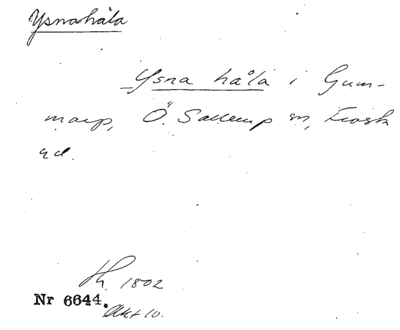 Ysnahåla
Ysna håla i Gum-
marp, Ö. Sallerup sn, Frosta
hd.
1802
Nr 6644.
Akt 10.